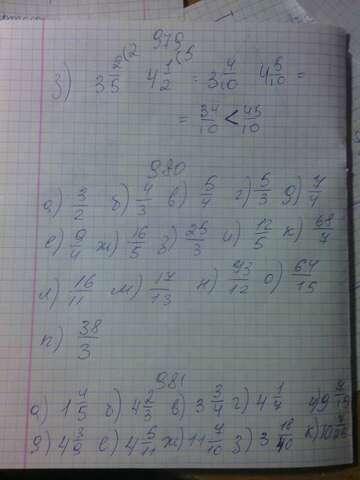 979
з) 3 2/5 (2 4 1/2 (5 = 3 4/10 4 5/10 =
= 34/10 < 45/10
980
а) 3/2 б) 4/3 в) 5/4 г) 5/3 д) 7/4
е) 9/4 ж) 16/5 з) 25/3 и) 12/5 к) 68/7
л) 16/11 м) 17/13 н) 43/12 о) 64/15
п) 38/3
981
а) 1 4/5 б) 4 2/3 в) 3 3/4 г) 4 1/4
д) 4 3/9 е) 4 5/11 ж) 11 7/10 з) 3 18/40